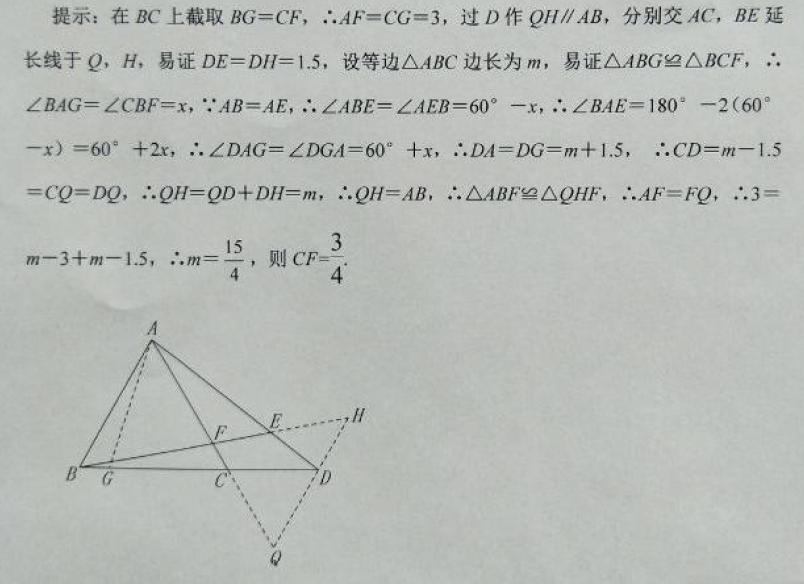 提示：在 BC 上截取 BG=CF，∴AF=CG=3，过 D 作 QH∥AB，分别交 AC，BE 延
长线于 Q，H，易证 DE=DH=1.5，设等边△ABC 边长为 m，易证△ABG≌△BCF，∴
∠BAG=∠CBF=x，∵AB=AE，∴∠ABE=∠AEB=60°－x，∴∠BAE=180°－2（60°
－x）=60°＋2x，∴∠DAG=∠DGA=60°＋x，∴DA=DG=m＋1.5，∴CD=m－1.5
=CQ=DQ，∴QH=QD＋DH=m，∴QH=AB，∴△ABF≌△QHF，∴AF=FQ，∴3=
m－3＋m－1.5，∴m=15/4，则 CF=3/4.
A
H
E
F
B
G
C
D
Q